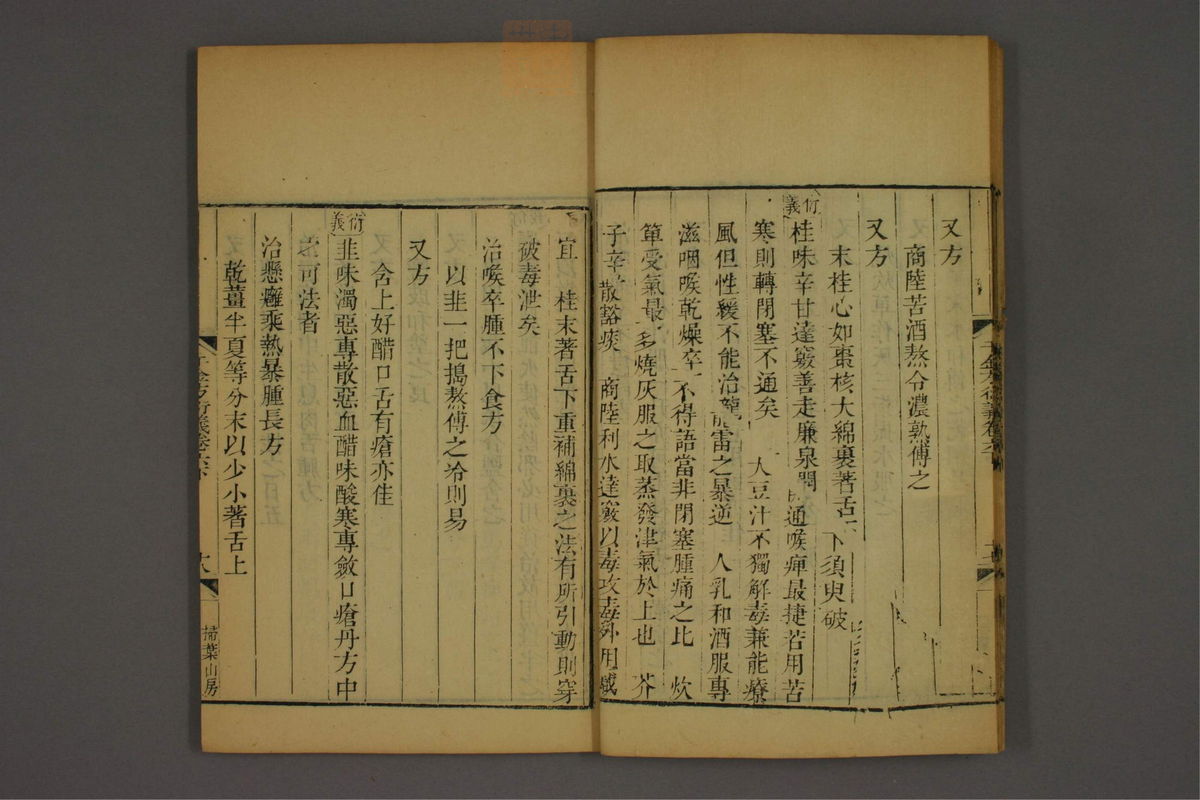 又方
商陸苦酒熬令濃熟傅之
又方
末桂心如棗核大綿裹著舌下須臾破
衍義
桂味辛甘達竅善走廉泉閉通喉痺最捷若用苦
寒則轉閉塞不通矣 大豆汁不獨解毒兼能療
風但性緩不能治龍雷之暴逆 人乳和酒服專
滋咽喉乾燥卒不得語當非閉塞腫痛之比 炊
箄受氣最多燒灰服之取蒸發津氣於上也 芥
子辛散豁痰 商陸利水達竅以毒攻毒
宜 桂末著舌下重補綿裹之法有所引動則穿
破毒泄矣
治喉卒腫不下食方
以韭一把搗熬傅之冷則易
又方
含上好醋口舌有瘡亦佳
衍義
韭味濁惡專散惡血醋味酸寒專斂口瘡丹方中
可法者
治懸癰乘熱暴腫長方
乾薑半夏等分末以少小著舌上
掃葉山房